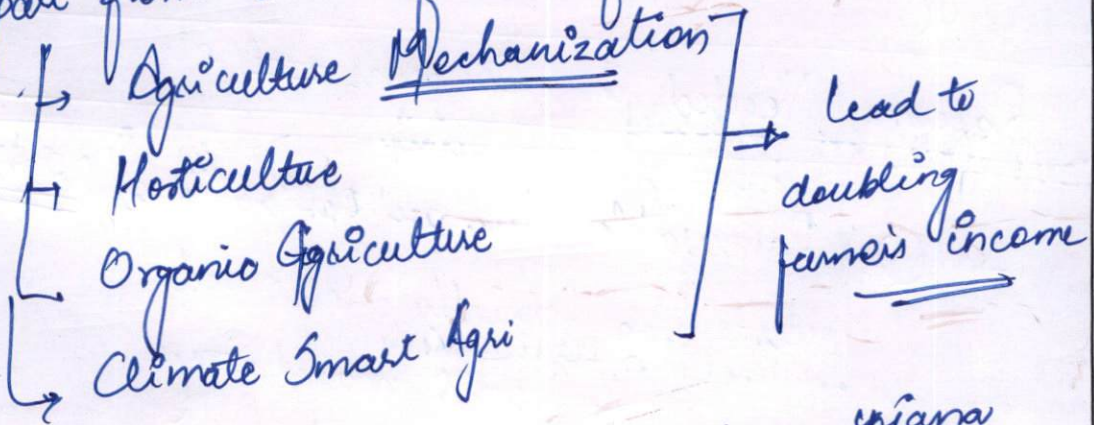 Agriculture Mechanization
Horticulture
Organic Agriculture
Climate Smart Agri
lead to
doubling
farmers income